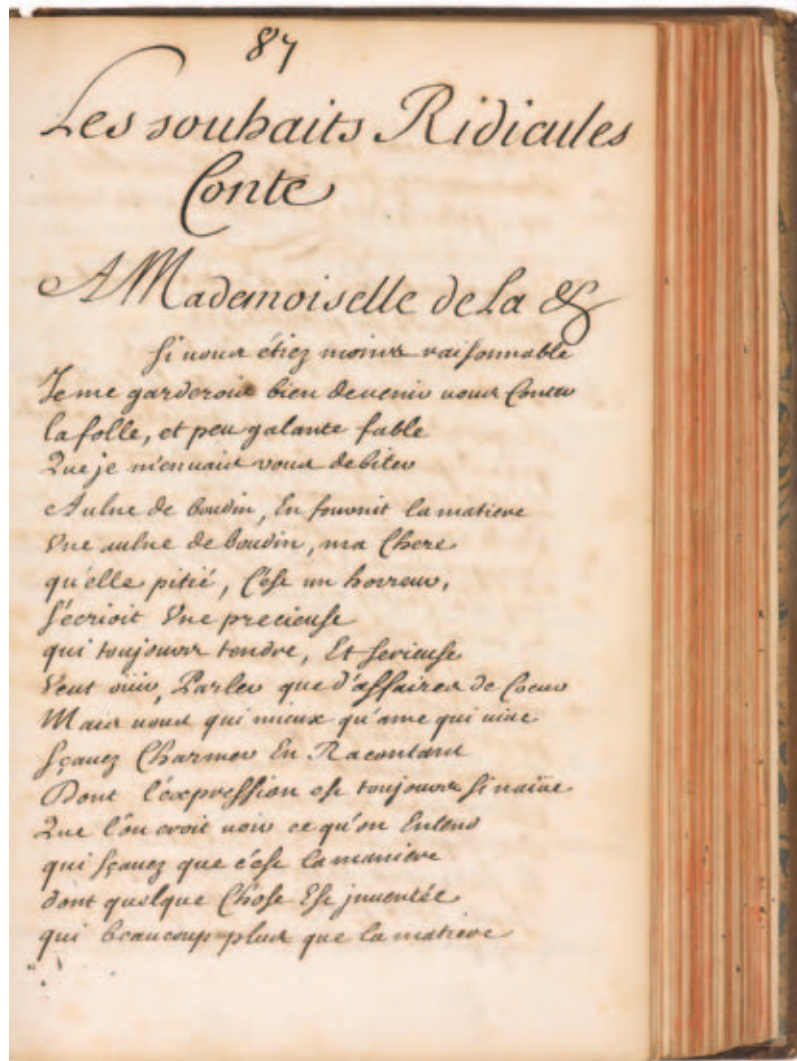 87
Les souhaits Ridicules
Conte
A Mademoiselle de La &
Si vous étiez moins raisonnable
Je me garderois bien de venir vous Conter
la folle, et peu galante fable
Que je m'en vais vous debiter
Aulne de boudin, En fournit la matiere
Une aulne de boudin, ma Chere
qu'elle pitié, C'est un horreur,
S'écrioit Une precieuse
qui toujours tendre, Et serieuse
Veut oüir, Parler que d'affaires de Coeur
Mais vous qui mieux qu'ame qui vive
Sçavez Charmer En Racontant
Dont l'expression est toujours si naïve
Que l'on croit voir ce qu'on Entend
qui sçavez que c'est la maniere
dont quelque Chose Est jnventée
qui beaucoup plus que la matiere